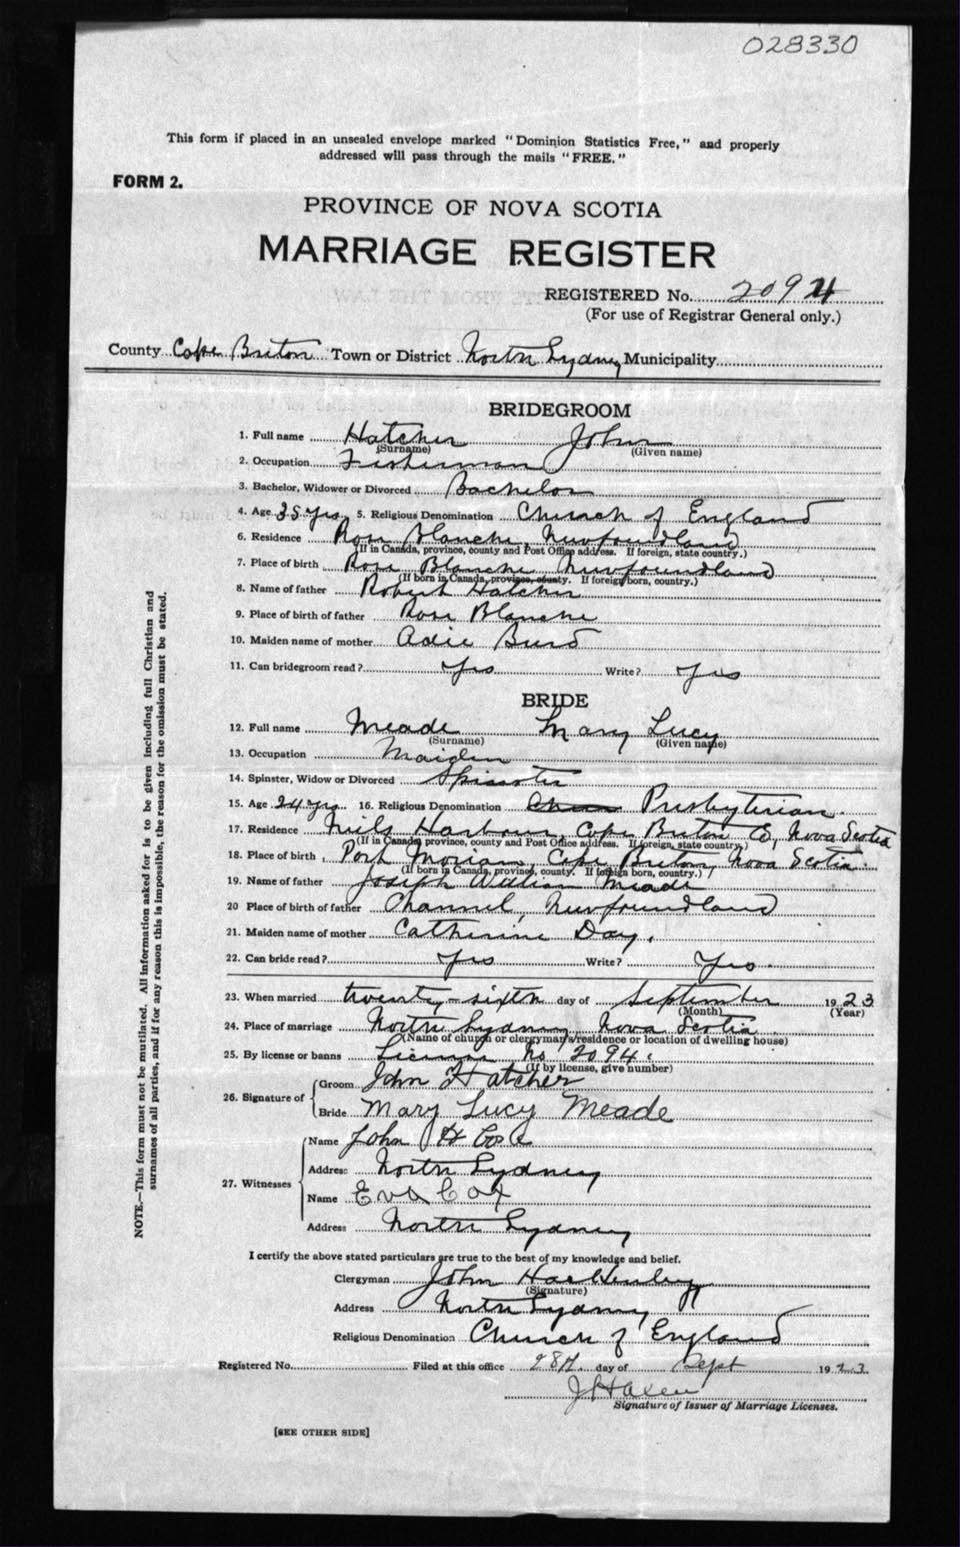 028330
This form if placed in an unsealed envelope marked "Dominion Statistics Free," and properly
addressed will pass through the mails "FREE."
FORM 2.
PROVINCE OF NOVA SCOTIA
MARRIAGE REGISTER
REGISTERED No. 2094
(For use of Registrar General only.)
County Cape Breton Town or District North Sydney Municipality
BRIDEGROOM
1. Full name Hatcher John
(Surname) (Given name)
2. Occupation Fisherman
3. Bachelor, Widower or Divorced Bachelor
4. Age 35 yrs 5. Religious Denomination Church of England
6. Residence Rose Blanche, Newfoundland
(If in Canada, province, county and Post Office address. If foreign, state country.)
7. Place of birth Rose Blanche Newfoundland
(If born in Canada, province, county. If foreign born, country.)
8. Name of father Robert Hatcher
9. Place of birth of father Rose Blanche
10. Maiden name of mother Adie
11. Can bridegroom read? Yes Write? Yes
BRIDE
12. Full name Meade Mary Lucy
(Surname) (Given name)
13. Occupation Maiden
14. Spinster, Widow or Divorced Spinster
15. Age 24 yrs 16. Religious Denomination Presbyterian
17. Residence Neils Harbour, Cape Breton Co, Nova Scotia
(If in Canada province, county and Post Office address. If foreign, state country.)
18. Place of birth Port Morian, Cape Breton, Nova Scotia
(If born in Canada, province, county. If foreign born, country.)
19. Name of father Joseph William Meade
20 Place of birth of father Channel, Newfoundland
21. Maiden name of mother Catherine Day.
22. Can bride read? Yes Write? Yes
23. When married twenty-sixth day of September 1923
(Month) (Year)
24. Place of marriage North Sydney, Nova Scotia
(Name of church or clergyman's residence or location of dwelling house)
25. By license or banns License No 2094.
(If by license, give number)
26. Signature of Groom John Hatcher
Bride Mary Lucy Meade
27. Witnesses Name John H Cox
Address North Sydney
Name Eva Cox
Address North Sydney
I certify the above stated particulars are true to the best of my knowledge and belief.
Clergyman John
(Signature)
Address North Sydney
Religious Denomination Church of England
Registered No. Filed at this office 28th day of Sept 1923
Signature of Issuer of Marriage Licenses.
[SEE OTHER SIDE]
NOTE.—This form must not be mutilated. All information asked for is to be given including full Christian and
surnames of all parties, and if for any reason this is impossible, the reason for the omission must be stated.